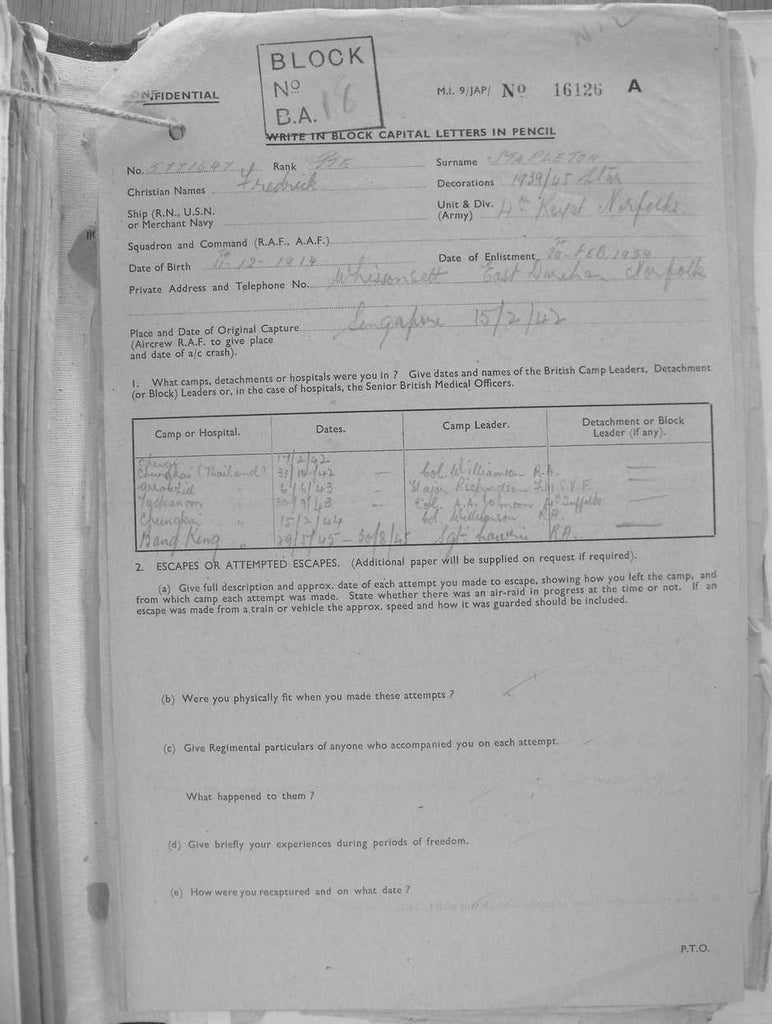 NIL
BLOCK
Nº
B.A. 18
CONFIDENTIAL
M.I. 9/JAP/ Nº 16126 A
WRITE IN BLOCK CAPITAL LETTERS IN PENCIL
No. 5771647 Rank PTE Surname STAPLETON
Christian Names Fredrick Decorations 1939/45 Star
Ship (R.N., U.S.N. or Merchant Navy Unit & Div. (Army) 4th Royal Norfolks.
Squadron and Command (R.A.F., A.A.F.)
Date of Birth 11-12-1914 Date of Enlistment FEB 1939
Private Address and Telephone No. Whissonsett East Dareham Norfolk
Place and Date of Original Capture Singapore 15/2/42
(Aircrew R.A.F. to give place
and date of a/c crash).
1. What camps, detachments or hospitals were you in ? Give dates and names of the British Camp Leaders, Detachment
(or Block) Leaders or, in the case of hospitals, the Senior British Medical Officers.
Camp or Hospital. Dates. Camp Leader. Detachment or Block Leader (if any).
17/2/42
Chungkai (Thailand) 31/10/42 — Col. Williamson R.A.
6/6/43 — Major Richardson F.M.S.V.F.
30/9/43 — A.A. Johnson 4th Suffolks
Chungkai " 15/2/44 Col Williamson R.A.
29/5/45 — 30/8/45 Sgt. R.A.
2. ESCAPES OR ATTEMPTED ESCAPES. (Additional paper will be supplied on request if required).
(a) Give full description and approx. date of each attempt you made to escape, showing how you left the camp, and
from which camp each attempt was made. State whether there was an air-raid in progress at the time or not. If an
escape was made from a train or vehicle the approx. speed and how it was guarded should be included.
(b) Were you physically fit when you made these attempts ?
(c) Give Regimental particulars of anyone who accompanied you on each attempt.
What happened to them ?
(d) Give briefly your experiences during periods of freedom.
(e) How were you recaptured and on what date ?
P.T.O.